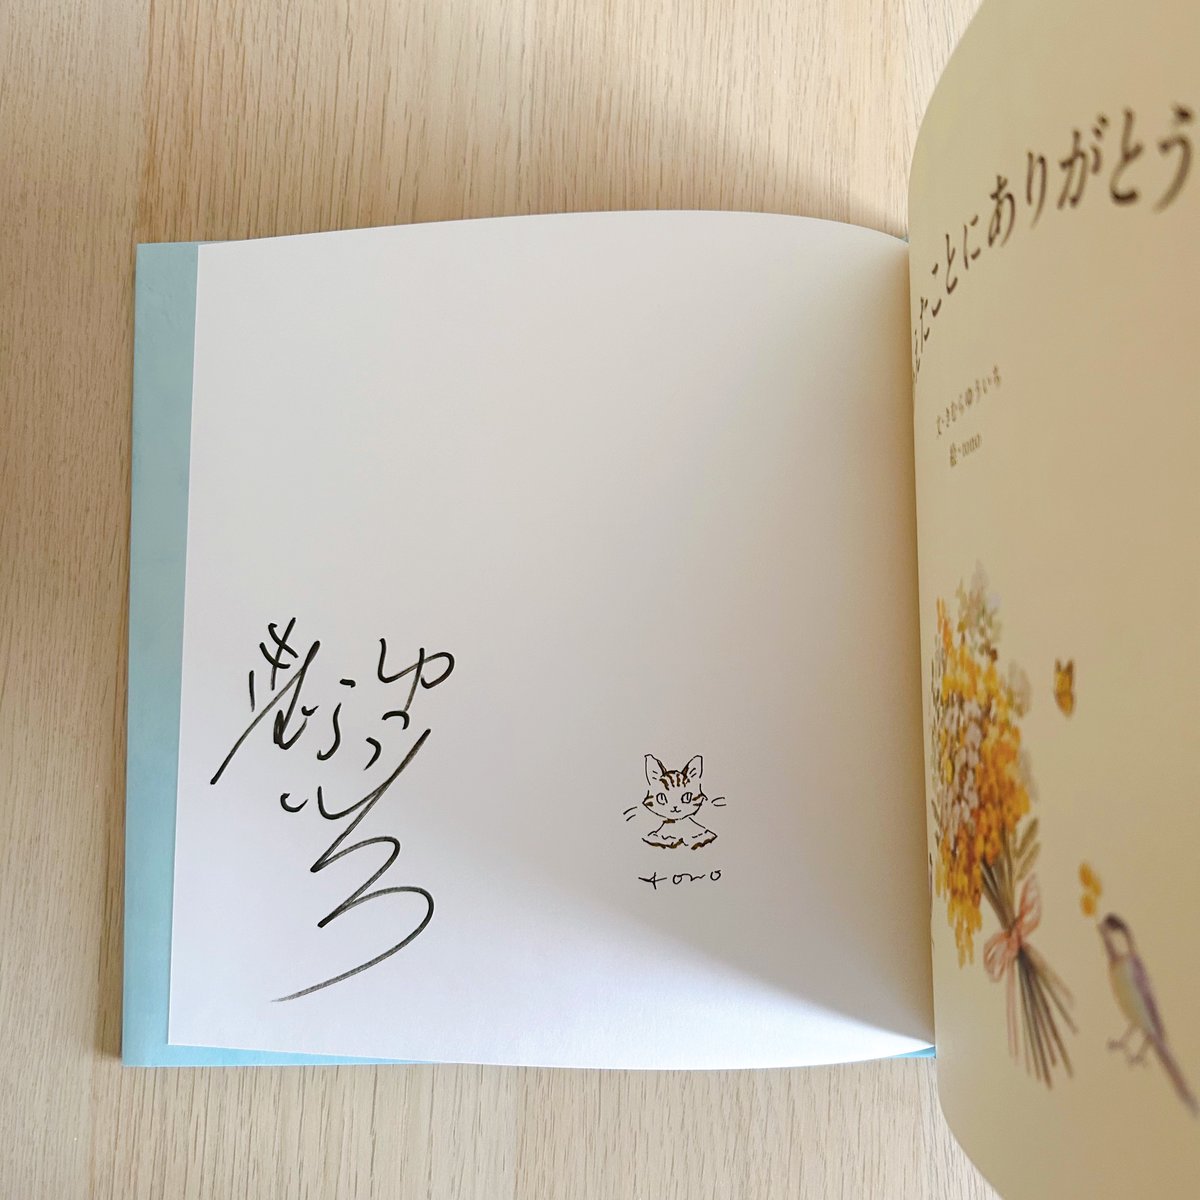 きむら
ゆういち
tono
えたことにありがとう
文・きむらゆういち
絵・tono